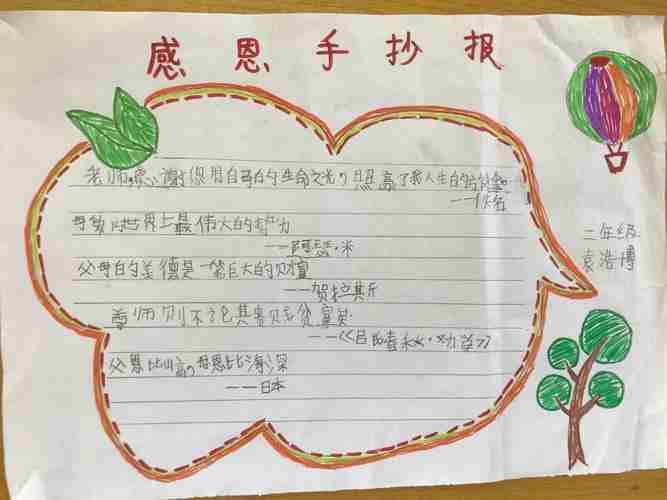 感恩手抄报
老师,感谢你用自己的生命之光,照亮了我人生的
母爱是世界上最伟大的力
——米
父母的美德是一笔巨大的财富
——贺拉斯
尊师则不论其贵贱贫富矣
——《吕氏春秋·劝学》
父恩比山高,母恩比海深
——日本
二年级
袁浩博